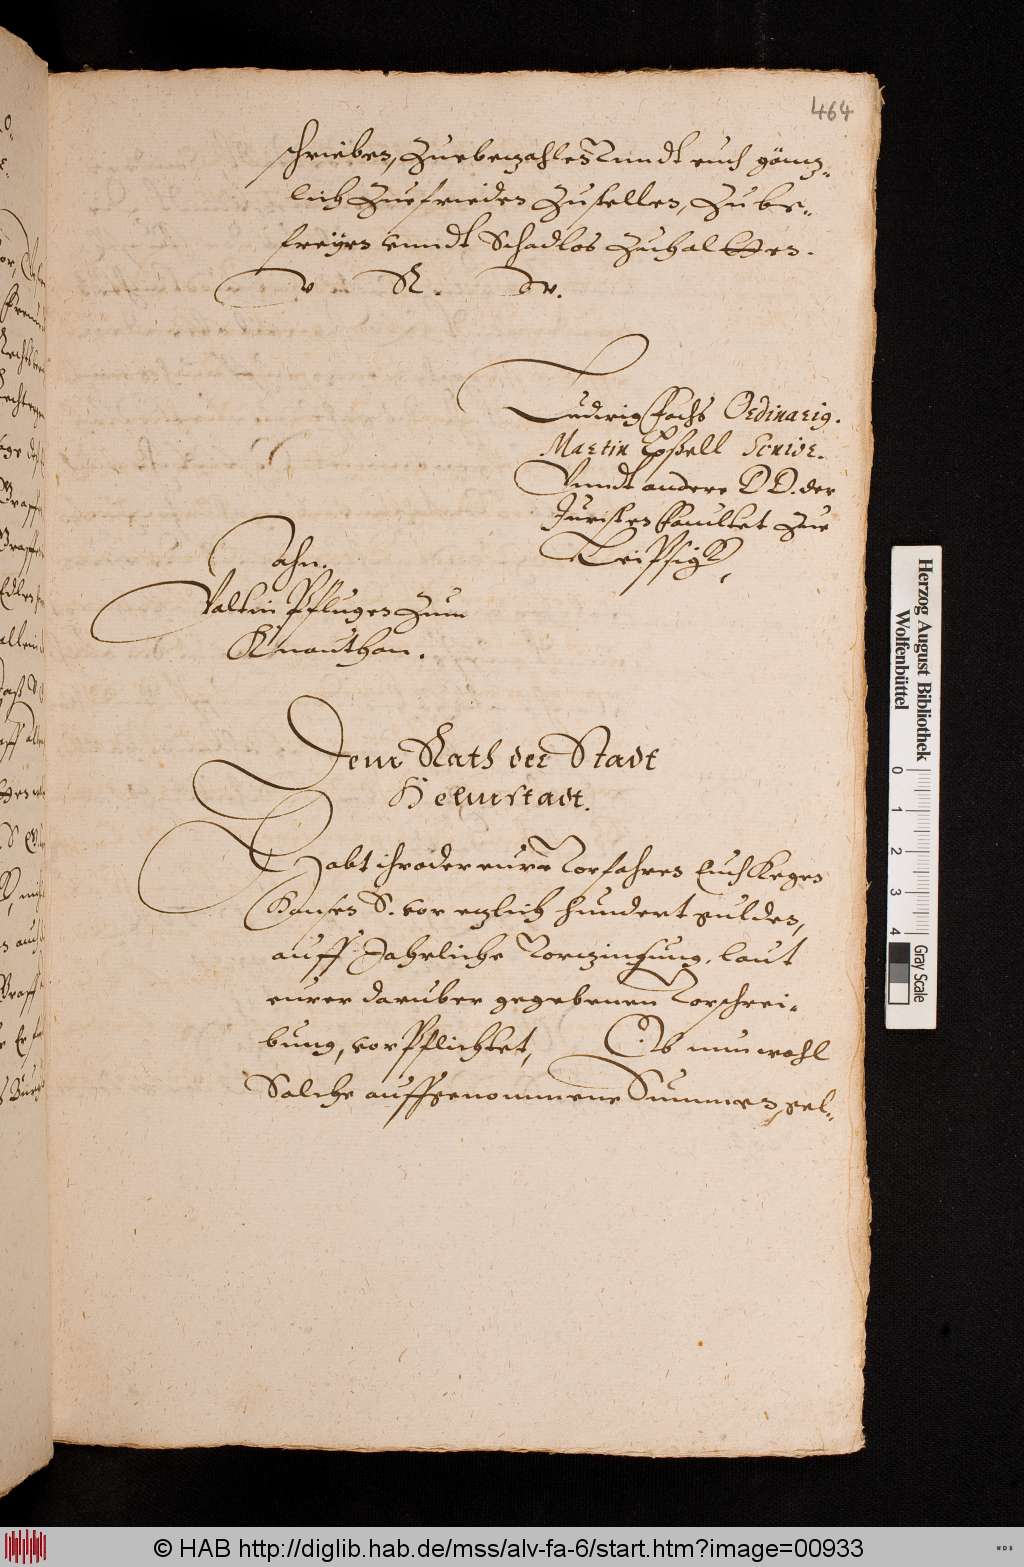 464
schrieben, Zuebenzahlen Vnndt euch gäntz-
lich Zuefrieden Zustellen, Zu be-
freyen vnndt Schadlos Zuhaltten.
V R. W.
Ludwig Fachs Ordinarius.
Martin Senior.
Vnndt andere DD. der
Juristen Facultet Zue
Leipsigk,
Ahn.
Valtin Pflugen Zum
Knauthan.
Dem Rath der Stadt
Helmstadt.
Habt ihr oder eure Vorfahren Euch Kegen
Hansen S. vor etzlich hundert gulden,
auff Jahrliche Vorzinsung, laut
eurer daruber gegebenen Vorschrei-
bung, vorpflichtet, Ob nun wohl
Solche auffgenommene Summen, sel-
Herzog August Bibliothek
Wolfenbüttel
0 1 2 3 4
Gray Scale
© HAB http://diglib.hab.de/mss/alv-fa-6/start.htm?image=00933